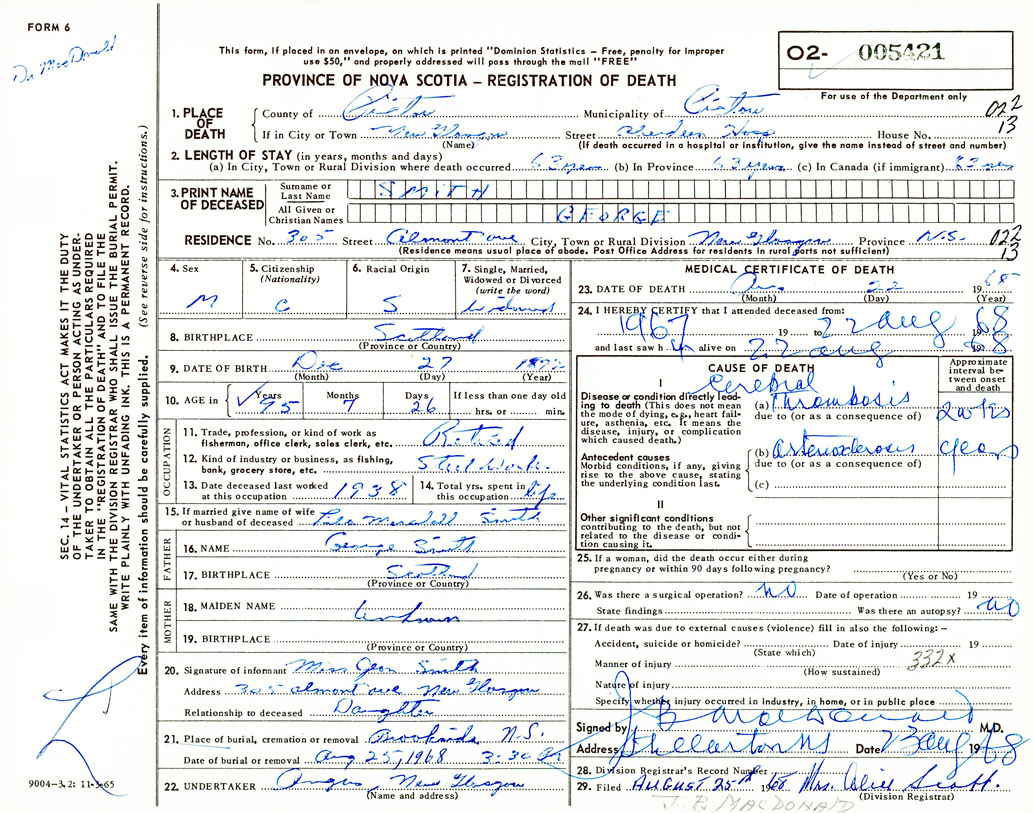 FORM 6
Dr MacDonald
This form, if placed in an envelope, on which is printed "Dominion Statistics – Free, penalty for improper
use $50," and properly addressed will pass through the mail "FREE"
PROVINCE OF NOVA SCOTIA – REGISTRATION OF DEATH
02- 005421
For use of the Department only
1. PLACE OF DEATH
County of Pictou Municipality of Pictou 022
If in City or Town New Glasgow Street Aberdeen Hosp House No. 13
(Name) (If death occurred in a hospital or institution, give the name instead of street and number)
2. LENGTH OF STAY (in years, months and days)
(a) In City, Town or Rural Division where death occurred 63 years (b) In Province 63 years (c) In Canada (if immigrant) 63 yrs
3. PRINT NAME OF DECEASED
Surname or Last Name SMITH
All Given or Christian Names GEORGE
RESIDENCE No. 305 Street Almont ave City, Town or Rural Division New Glasgow Province N.S. 022
(Residence means usual place of abode. Post Office Address for residents in rural parts not sufficient) 13
4. Sex M
5. Citizenship (Nationality) C
6. Racial Origin S
7. Single, Married, Widowed or Divorced (write the word) Widowed
8. BIRTHPLACE Scotland
(Province or Country)
9. DATE OF BIRTH Dec 27
(Month) (Day) (Year)
10. AGE in Years 95 Months 7 Days 26 If less than one day old
hrs. or min.
OCCUPATION
11. Trade, profession, or kind of work as
fisherman, office clerk, sales clerk, etc. Retired
12. Kind of industry or business, as fishing,
bank, grocery store, etc. Steel Work
13. Date deceased last worked
at this occupation 1938
14. Total yrs. spent in
this occupation life
15. If married give name of wife
or husband of deceased Smith
FATHER
16. NAME George Smith
17. BIRTHPLACE Scotland
(Province or Country)
MOTHER
18. MAIDEN NAME Unknown
19. BIRTHPLACE
(Province or Country)
20. Signature of informant Miss Jean Smith
Address 305 almont ave New Glasgow
Relationship to deceased Daughter
21. Place of burial, cremation or removal Brookside N.S.
Date of burial or removal Aug 25, 1968 3:30
22. UNDERTAKER Angus New Glasgow
(Name and address)
MEDICAL CERTIFICATE OF DEATH
23. DATE OF DEATH Aug 22 1968
(Month) (Day) (Year)
24. I HEREBY CERTIFY that I attended deceased from:
1967 19 to 22 aug 1968
and last saw him alive on 22 aug 1968
CAUSE OF DEATH
Approximate interval between onset and death
I
Disease or condition directly lead-
ing to death (This does not
mean the mode of dying, e.g., heart fail-
ure, asthenia, etc. It means the
disease, injury, or complication
which caused death.)
Cerebral
(a) Thrombosis 2 wks
due to (or as a consequence of)
Antecedent causes
Morbid conditions, if any, giving
rise to the above cause, stating
the underlying condition last.
(b) arteriosclerosis years
due to (or as a consequence of)
(c)
II
Other significant conditions
contributing to the death, but not
related to the disease or condi-
tion causing it.
25. If a woman, did the death occur either during
pregnancy or within 90 days following pregnancy?
(Yes or No)
26. Was there a surgical operation? NO Date of operation 19
State findings Was there an autopsy? NO
27. If death was due to external causes (violence) fill in also the following: –
Accident, suicide or homicide? Date of injury 19
(State which)
Manner of injury 332X
(How sustained)
Nature of injury
Specify whether injury occurred in Industry, in home, or in public place
Signed by J B MacDonald M.D.
Address Stellarton NS Date 23 aug 1968
28. Division Registrar's Record Number
29. Filed AUGUST 25th 1968 Mrs. Alice Scott.
(Division Registrar)
J. B. MACDONALD
SEC. 14 – VITAL STATISTICS ACT MAKES IT THE DUTY
OF THE UNDERTAKER OR PERSON ACTING AS UNDER-
TAKER TO OBTAIN ALL THE PARTICULARS REQUIRED
IN THE "REGISTRATION OF DEATH" AND TO FILE THE
SAME WITH THE DIVISION REGISTRAR WHO SHALL ISSUE THE BURIAL PERMIT.
WRITE PLAINLY WITH UNFADING INK. THIS IS A PERMANENT RECORD.
Every item of information should be carefully supplied. (See reverse side for instructions.)
9004-3.2: 11-3-65